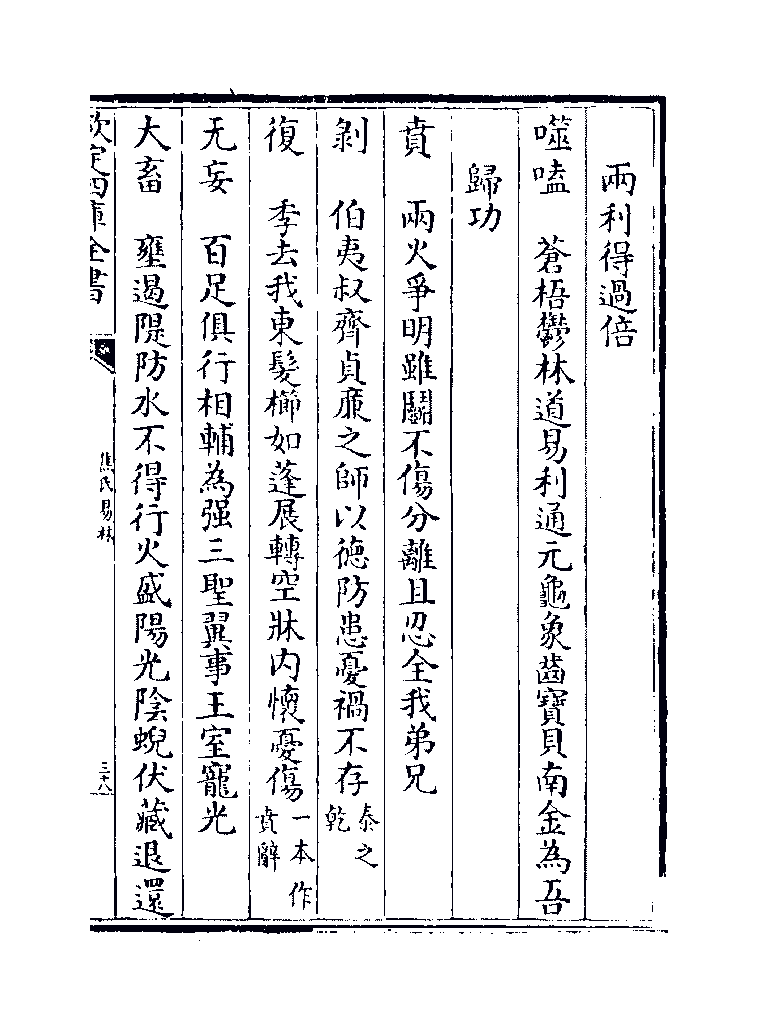 兩利得過倍
噬嗑　蒼梧鬱林道易利通元龜象齒寶貝南金為吾
歸功
賁　兩火爭明雖鬭不傷分離且忍全我弟兄
剝　伯夷叔齊貞廉之師以德防患憂禍不存泰之乾
復　季去我東髮櫛如蓬展轉空牀内懷憂傷一本作賁辭
无妄　百足俱行相輔為强三聖翼事王室寵光
大畜　壅遏隄防水不得行火盛陽光陰蜺伏藏退還
欽定四庫全書
焦氏易林
三十八